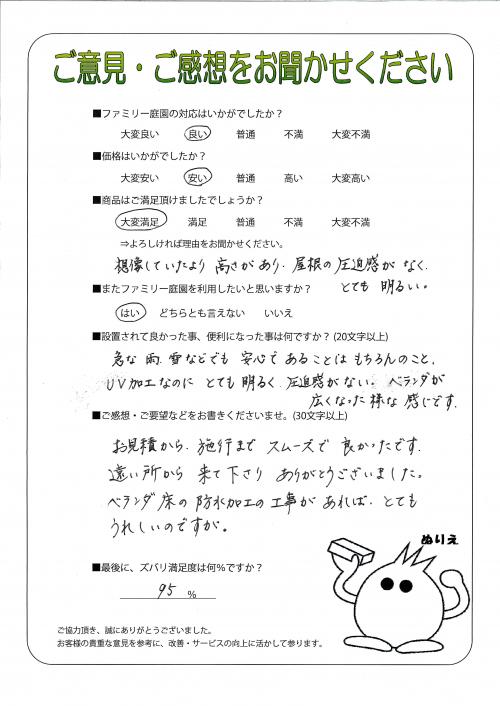 ご意見・ご感想をお聞かせください
■ファミリー庭園の対応はいかがでしたか？
大変良い 良い 普通 不満 大変不満
■価格はいかがでしたか？
大変安い 安い 普通 高い 大変高い
■商品はご満足頂けましたでしょうか？
大変満足 満足 普通 不満 大変不満
⇒よろしければ理由をお聞かせください。
想像していたより 高さがあり、屋根の圧迫感がなく、
とても 明るい。
■またファミリー庭園を利用したいと思いますか？
はい どちらとも言えない いいえ
■設置されて良かった事、便利になった事は何ですか？(20文字以上)
急な 雨、雪などでも 安心であることは もちろんのこと、
UV加工なのに とても明るく、圧迫感がない。ベランダが
広くなった様な 感じです。
■ご感想・ご要望などをお書きくださいませ。(30文字以上)
お見積から、施行まで スムーズで 良かったです。
遠い所から 来て下さり ありがとうございました。
ベランダ床の 防水加工の工事が あれば、とても
うれしいのですが。
ぬりえ
■最後に、ズバリ満足度は何％ですか？
95 ％
ご協力頂き、誠にありがとうございました。
お客様の貴重な意見を参考に、改善・サービスの向上に活かして参ります。